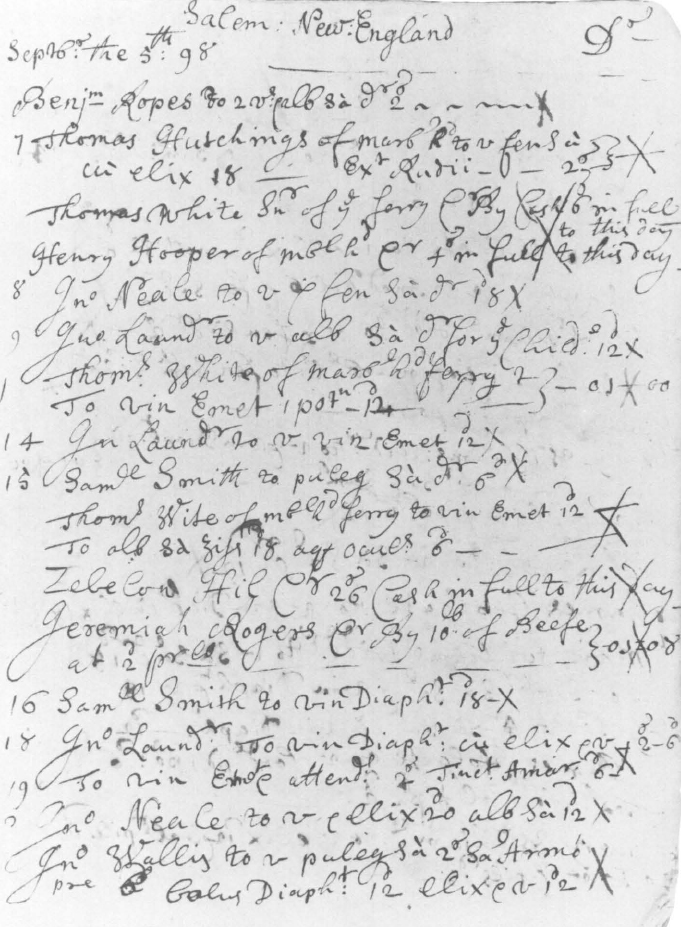 Salem: New: England
Septbr. the 5th: 98 Dr
Benjm Ropes to 2 v: alb sà dr 2s
7 Thomas Hutchings of marb hd to v fen sà
cū elix 18 Ext Rudii
Thomas White Snr of ye ferry Cr By Cash 6s in full
to this day
Henry Hooper of mblhd Cr 4s in full to this day
8 Jno Neale to v fen sà dr 18d X
9 Jno Laundr to v alb sà dr for ye Child: 12d X
1 Thoms White of marbhd ferry
To vin Emet 1 potn 12d 01 00
14 Jn Laundr to v vin Emet 12d X
15 Samll Smith to puleg sà dr 6d X
Thoms Wite of mblhd ferry to vin Emet 12d
To alb sà 18 aqt ocul: 6d
Zebelon Hill Cr 26s Cash in full to this day
Jeremiah Rogers Cr By 10lb of Beefe
at 2d pr lb 01 08
16 Samll Smith to vin Diapht: 18d X
18 Jno Laundr. To vin Diapht: cū elix pv 2s-6d
19 To vin Emet attendt 2s Tinct Amar: 6d X
Jno Neale to v elix 20d alb sà 12d X
Jno Wallis to v puleg sà 2s Sal Armo
pre bolus Diapht: 12 elix pv 12d X